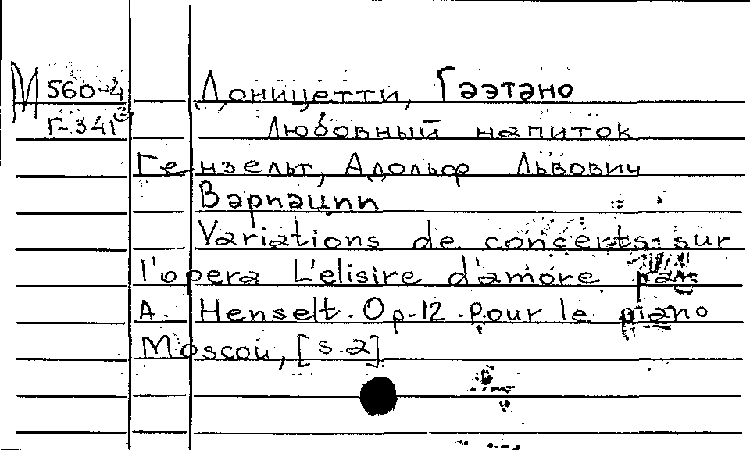 М 560-4 Доницетти, Гаэтано
Г-341 Любовный напиток
Гензельт, Адольф Львович
Вариации
Variations de concerts sur
l'opera L'elisire d'amore par
A. Henselt. Op. 12. pour le piano
Moscou, [s.a]